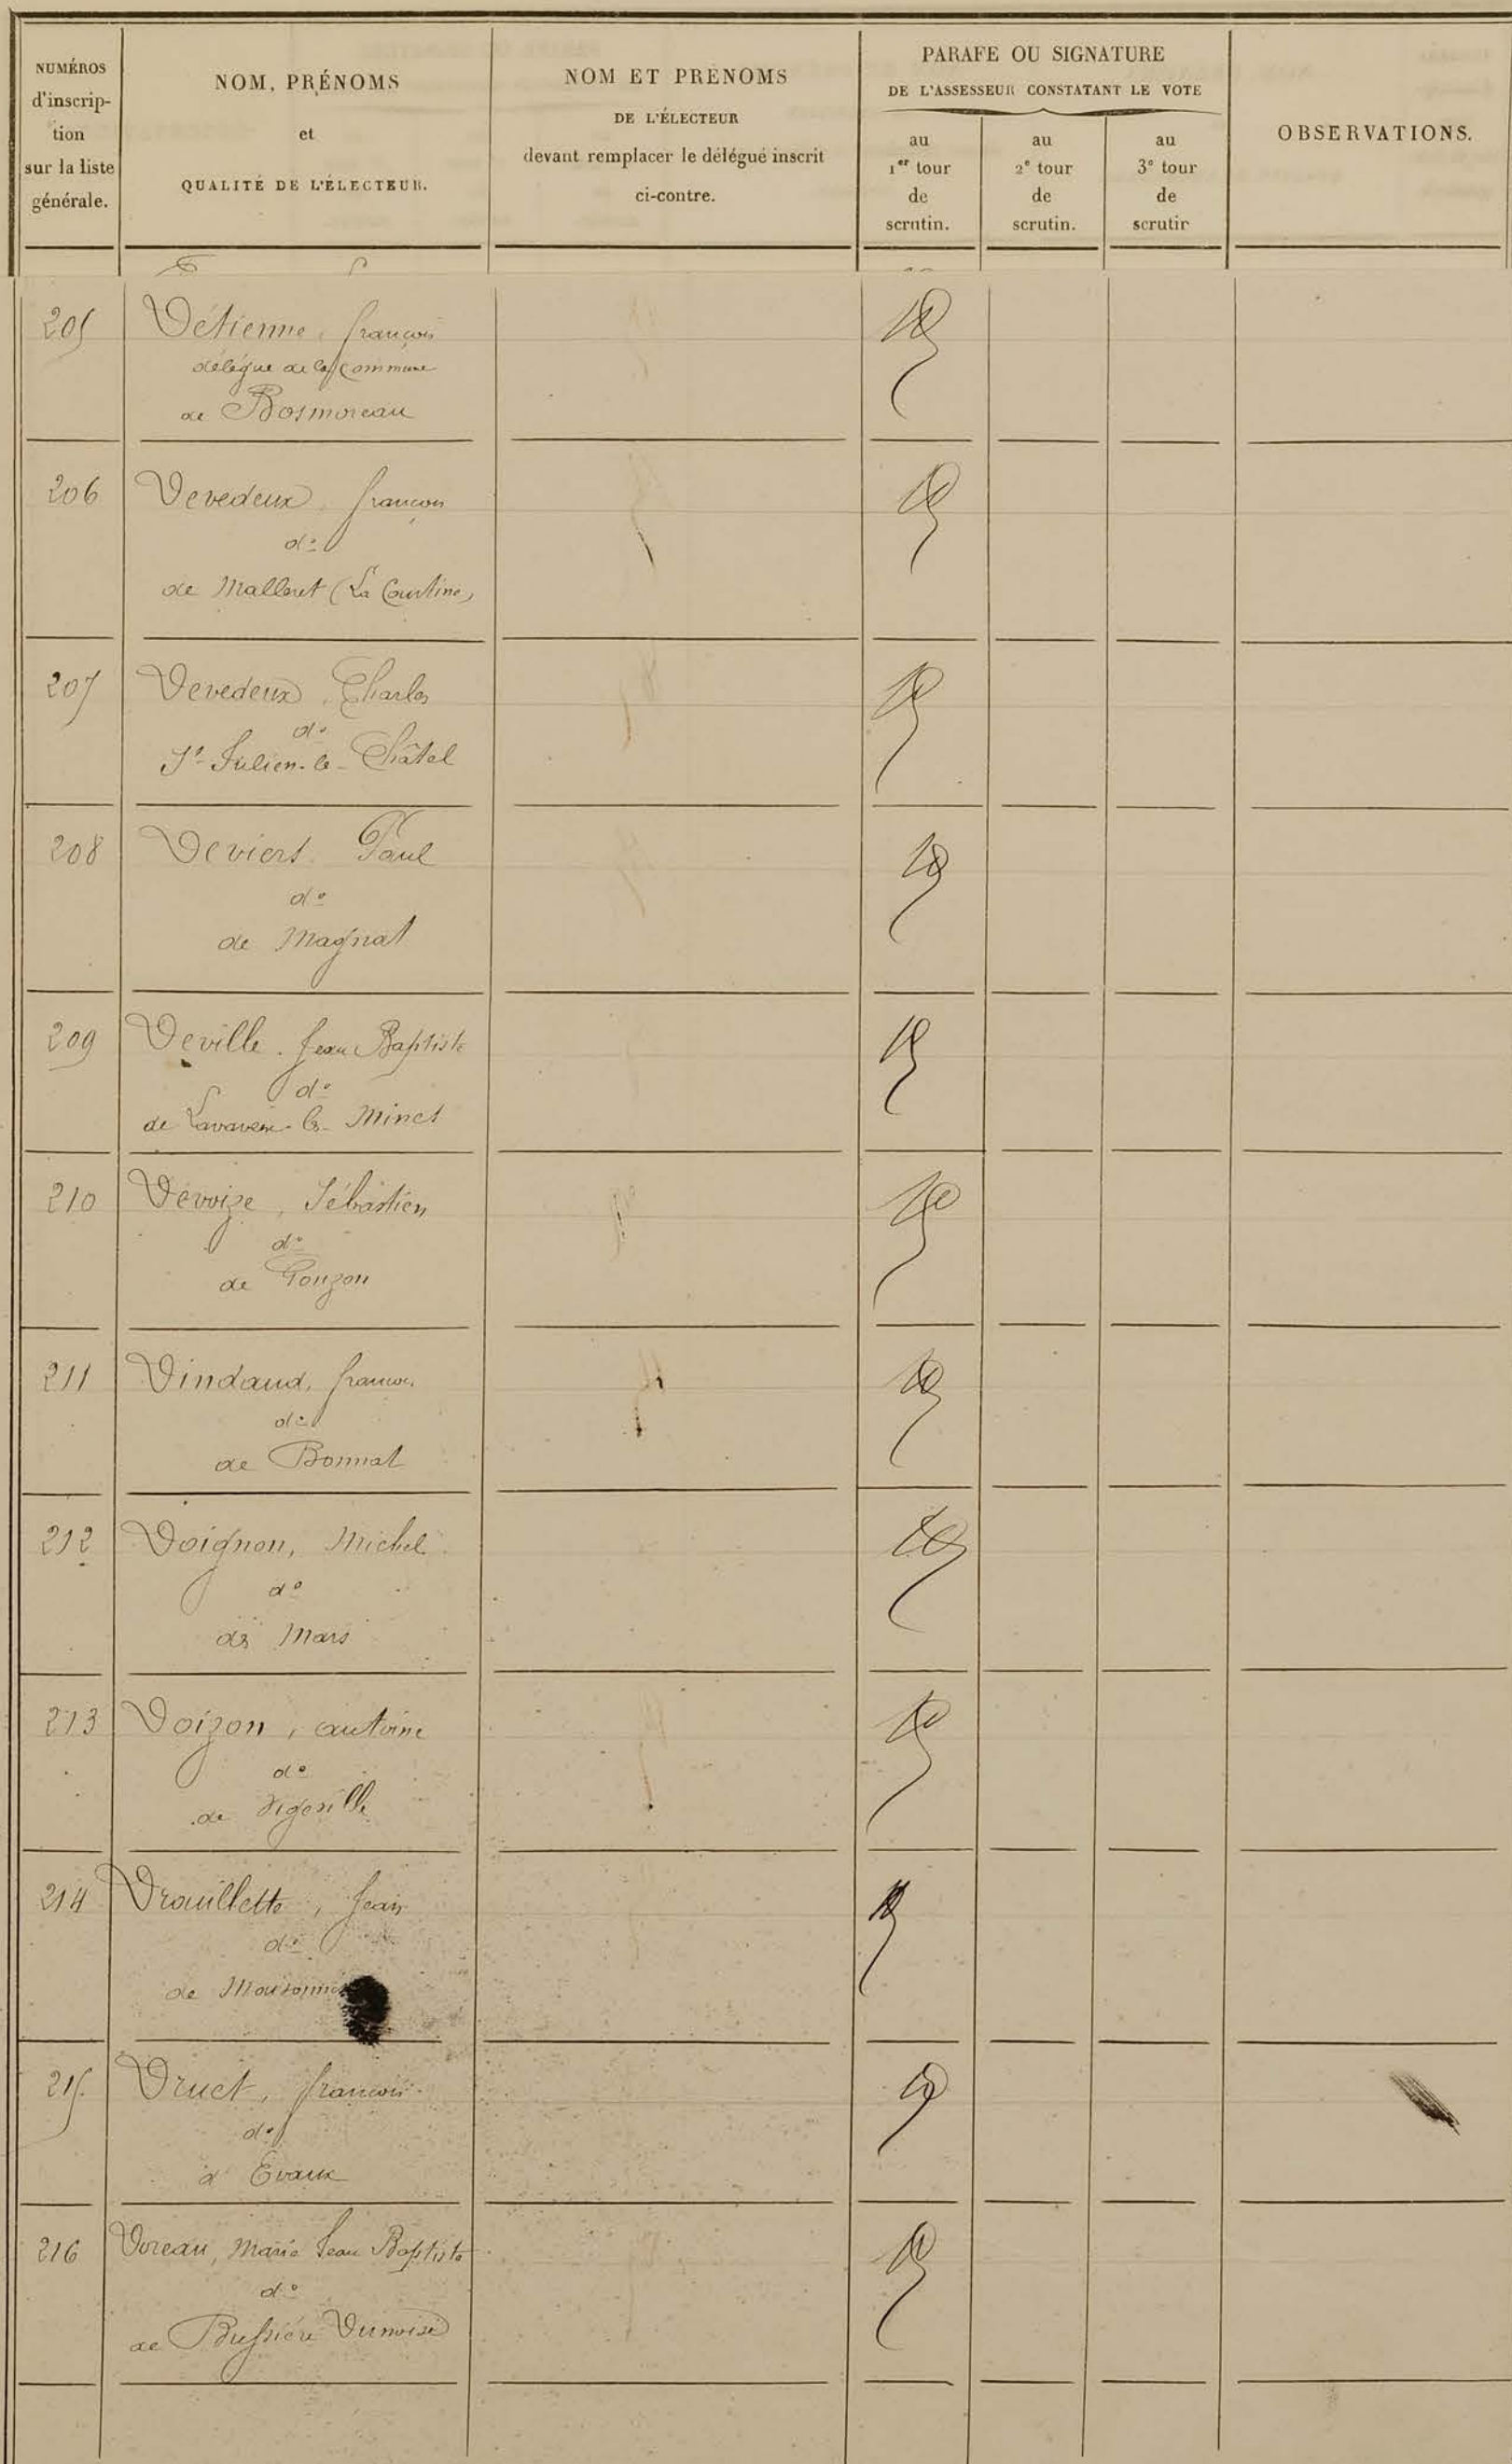 NUMÉROS
d'inscrip-
tion
sur la liste
générale.
NOM, PRÉNOMS
et
QUALITÉ DE L'ÉLECTEUR.
NOM ET PRÉNOMS
DE L'ÉLECTEUR
devant remplacer le délégué inscrit
ci-contre.
PARAFE OU SIGNATURE
DE L'ASSESSEUR CONSTATANT LE VOTE
au
1er tour
de
scrutin.
au
2e tour
de
scrutin.
au
3e tour
de
scrutin
OBSERVATIONS.
205 Détienne, françois
délégué de la commune
de Bosmoreau
206 Devedeux, françois
do
de Malleret (La Courtine)
207 Devedeux, Charles
do
St Julien-le-Châtel
208 Deviers Paul
do
de Magnat
209 Deville. Jean Baptiste
do
de Lavaveix-les-Mines
210 Devoize, Sébastien
do
de Gouzon
211 Dindaud, françois
do
de Bonnat
212 Doignon, Michel
do
des Mars
213 Doizon, antoine
do
de Vigeville
214 Drouillette, Jean
do
de
215. Druet, françois
do
d'Evaux
216 Doreau, Marie Jean Baptiste
do
de Bussière Dunoise